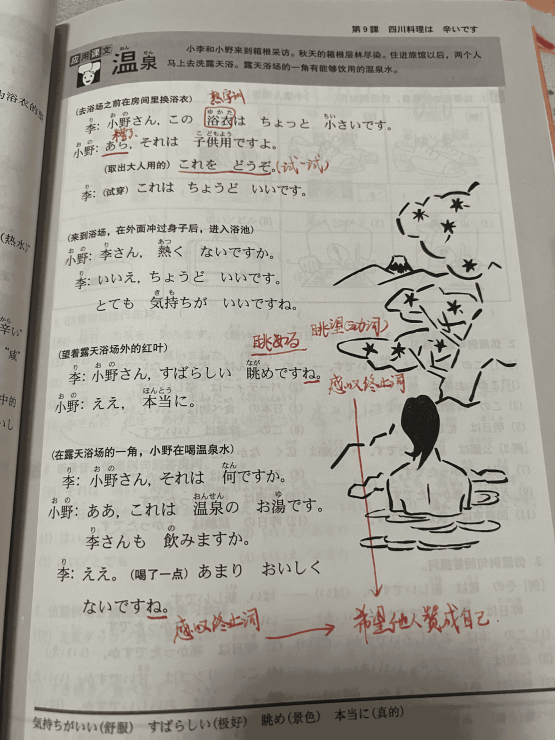 第9課 四川料理は 辛いです
应用课文
温泉
おん せん
小李和小野来到箱根采访。秋天的箱根层林尽染。住进旅馆以后，两个人
马上去洗露天浴。露天浴场的一角有能够饮用的温泉水。
(去浴场之前在房间里换浴衣)
熟字训
李: 小野さん, この 浴衣は ちょっと 小さいです。
糟了
小野: あら, それは 子供用ですよ。
(取出大人用的) これを どうぞ。(试一试)
李: (试穿) これは ちょうど いいです。
(来到浴场，在外面冲过身子后，进入浴池)
小野: 李さん, 熱く ないですか。
李: いいえ, ちょうど いいです。
とても 気持ちが いいですね。
眺める 眺望(动词)
(望着露天浴场外的红叶)
李: 小野さん, すばらしい 眺めですね。
感叹终止词
小野: ええ, 本当に。
(在露天浴场的一角，小野在喝温泉水)
李: 小野さん, それは 何ですか。
小野: ああ, これは 温泉の お湯です。
李さんも 飲みますか。
李: ええ。(喝了一点) あまり おいしく
ないですね。
感叹终止词 → 希望他人赞成自己
気持ちがいい(舒服) すばらしい(极好) 眺め(景色) 本当に(真的)
(热水)
辛い
"咸"
中的